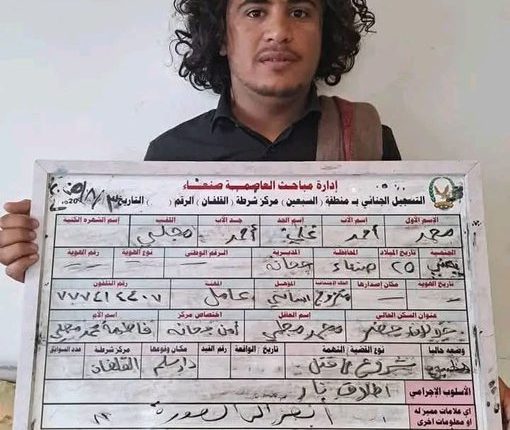 إدارة مباحث العاصمة صنعاء
التسجيل الجنائي بـ منطقة (السبعين) مركز شرطة (القلفان) الرقم ( ) التاريخ
الإسم الأول إسم الأب إسم الجد جد الأب اللقب إسم الشهره الكنية
محمد أحمد علي أحمد مجلي
الجنسية تاريخ الميلاد المحافظة المديرية الرقم الوطني نوع الهوية رقم الهوية
يمني ٢٥ صنعاء جحانة
تاريخ الهوية مكان إصدارها الحالة الإجتماعية المؤهل المهنة رقم التلفون
متزوج اساسي عامل ٧٧٧٤١٤٣٠٧
عنوان السكن الحالي إسم العاقل اختصاص مركز إسم الأم
محمد مجلي أمن جحانه فاطمة محمد مجلي
وضعه حاليا نوع القضية / التهمة تاريخ / الواقعة رقم القيد مكان وقوعها مركز شرطة عدد السوابق
شروع في قتل دارسلم القلفان
الأسلوب الإجرامي اطلاق نار
أي علامات مميزه له أو معلومات أخرى انظر الى الصورة